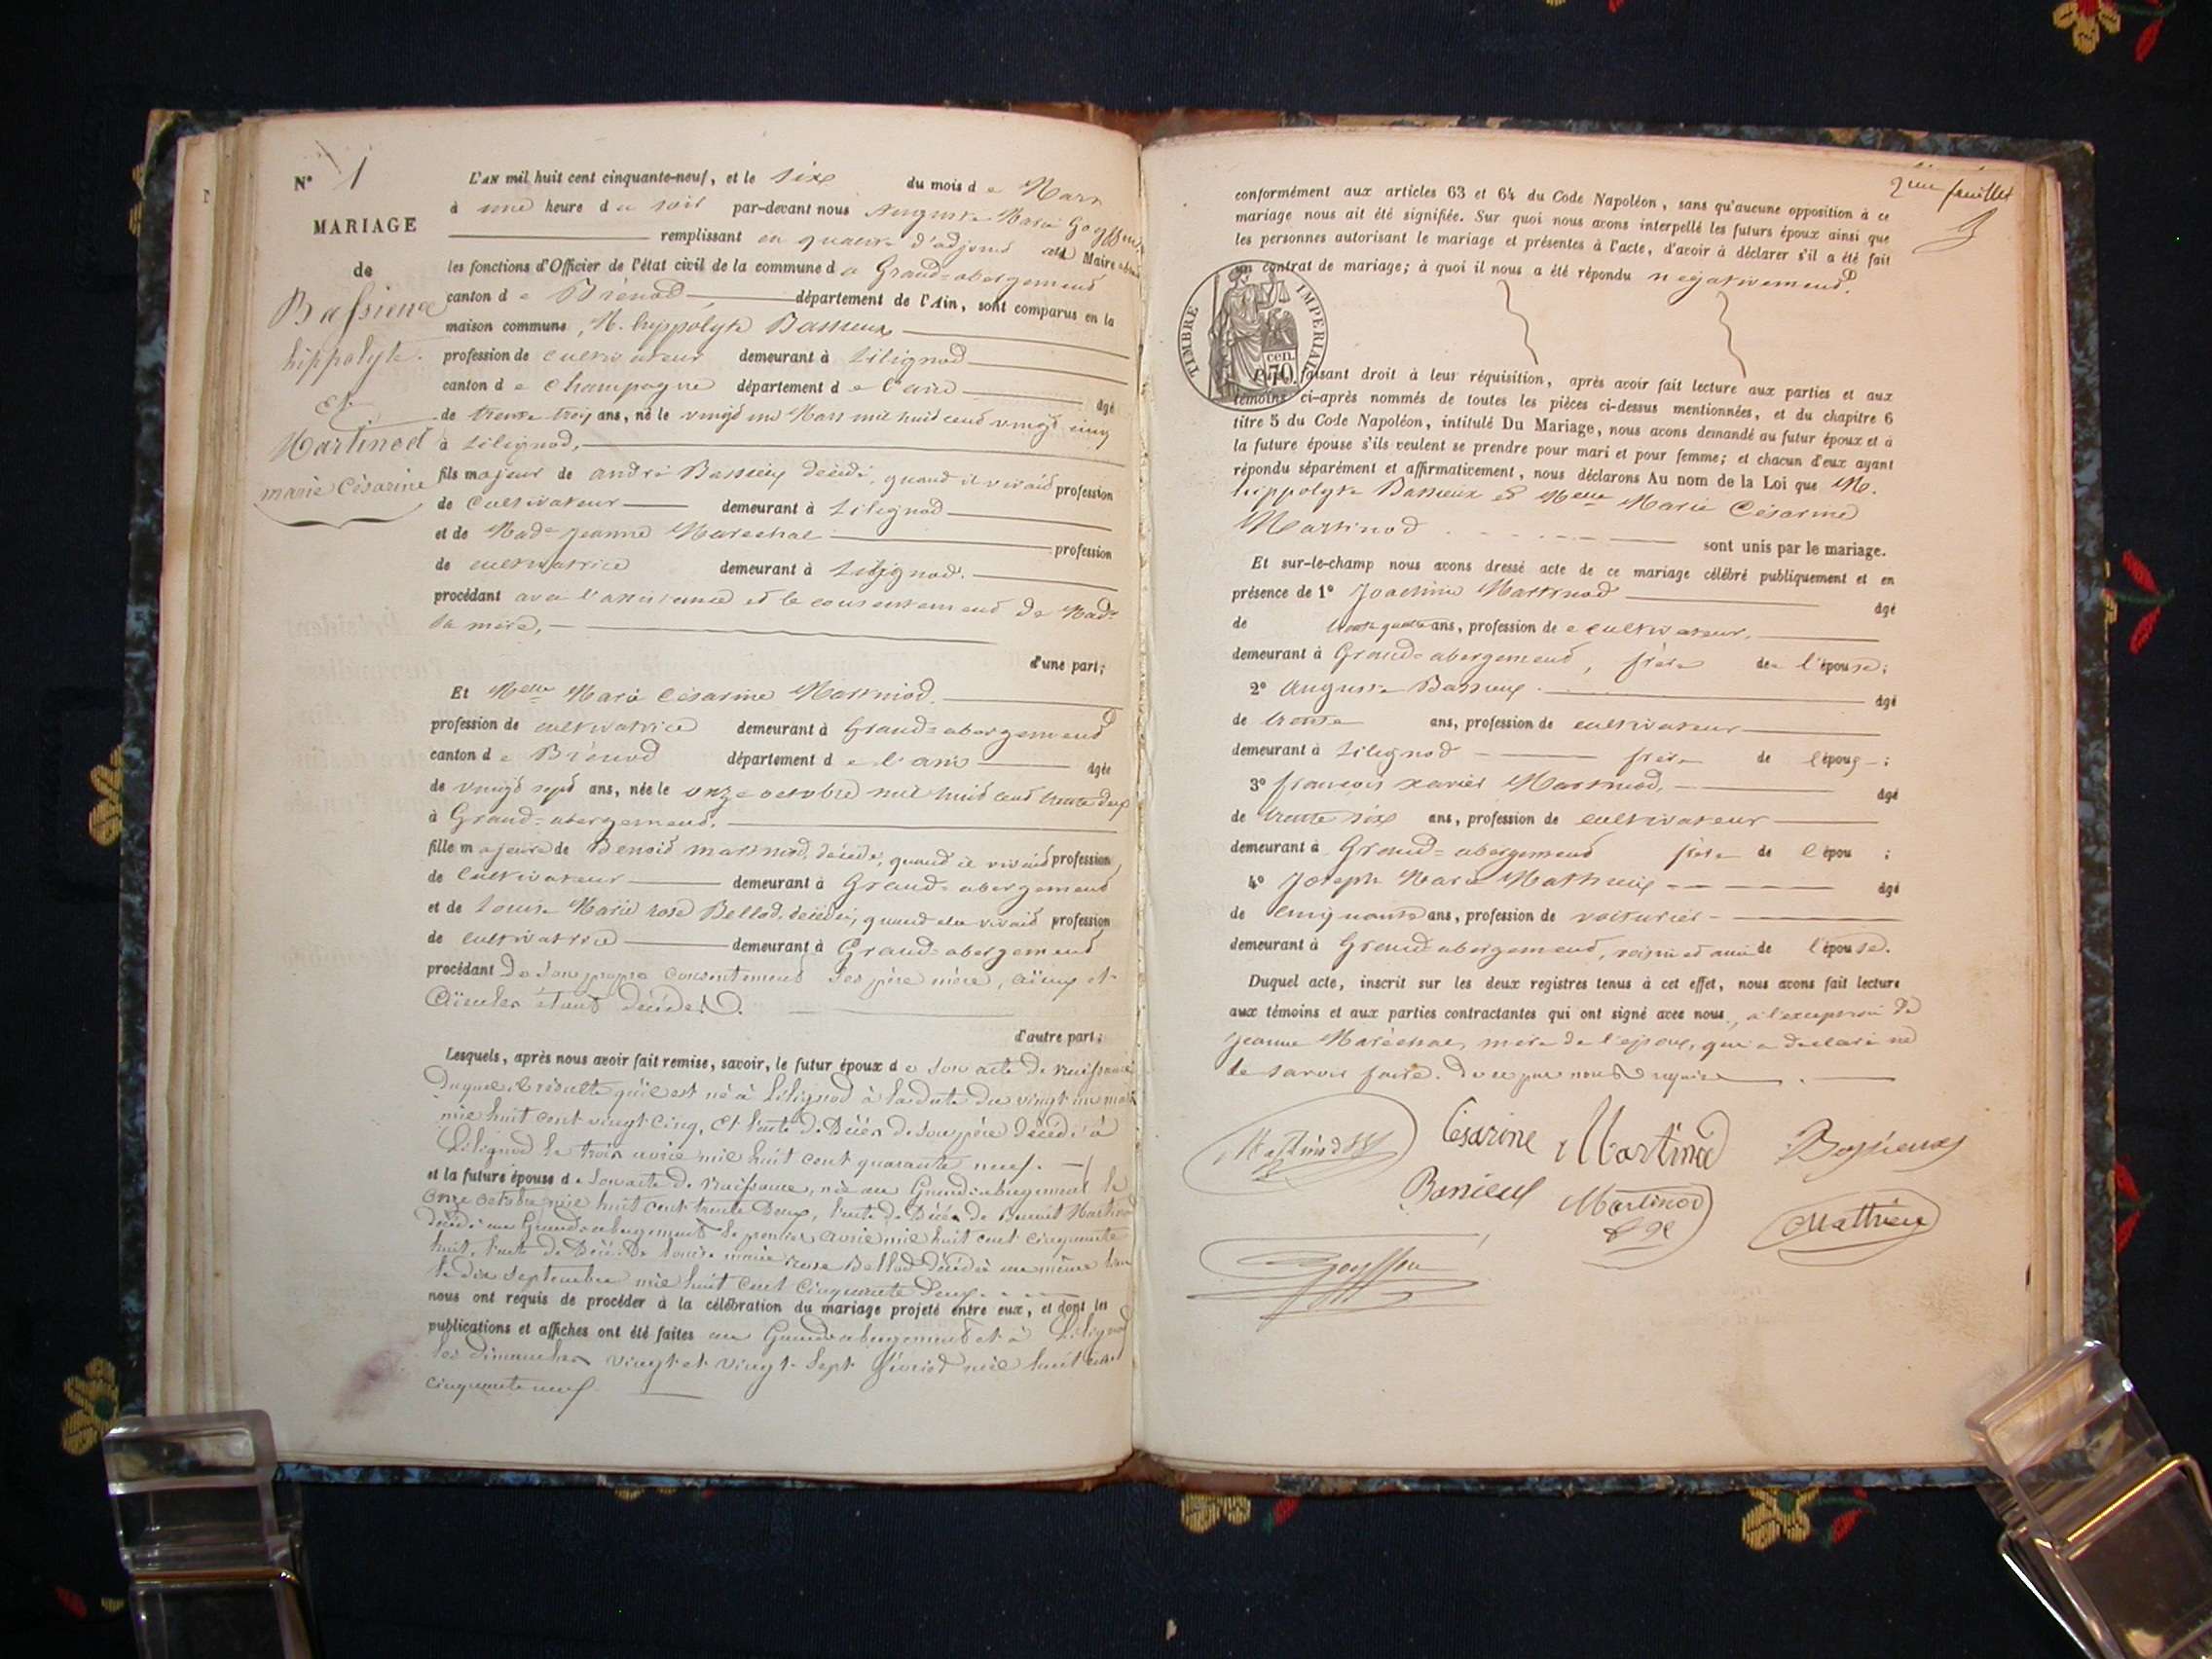 N° 1
MARIAGE
de
Bassieux
hippolyte.
Et
Martinod
marie Césarine
L'AN mil huit cent cinquante-neuf, et le six du mois de Mars
à une heure du soir par-devant nous Auguste Marie Goyffon
remplissant en qualité d'adjoint au Maire
les fonctions d'Officier de l'état civil de la commune de Grand=abergement
canton de Brénod, département de l'Ain, sont comparus en la
maison commune, M. hippolyte Bassieux
profession de cultivateur demeurant à Lilignod
canton de Champagne département de l'ain âgé
de trente trois ans, né le vingt un Mars mil huit cent vingt cinq
à Lilignod,
fils majeur de andré Bassieux décédé, quand il vivait profession
de Cultivateur demeurant à Lilignod
et de Made jeanne Maréchal profession
de cultivatrice demeurant à Lilignod.
procédant avec l'assistance et le consentement de Made
sa mère,
d'une part;
Et Melle Marie Césarine Martinod.
profession de cultivatrice demeurant à Grand=abergement
canton de Brénod département de l'ain âgée
de vingt sept ans, née le onze octobre mil huit cent trente deux
à Grand=abergement.
fille majeure de Benoit martinod, décédé, quand il vivait profession
de Cultivateur demeurant à Grand=abergement
et de Louise Marie rose Bellod, décédée, quand elle vivait profession
de cultivatrice demeurant à Grand=abergement
procédant de son propre consentement ses père mère, aïeux et
aïeules étant décédés.
d'autre part;
Lesquels, après nous avoir fait remise, savoir, le futur époux de son acte de naissance
duquel il résulte qu'il est né à Lilignod à la date du vingt un mars
mil huit cent vingt cinq, et l'acte de Décès de son père décédé à
Lilignod le trois avril mil huit cent quarante neuf.
et la future épouse de son acte de naissance, née au Grand=abergement le
onze octobre mil huit cent trente deux, l'acte de Décès de Benoit Martinod
décédé au Grand=abergement le premier avril mil huit cent cinquante
huit, l'acte de Décès de Louise marie rose Bellod décédée au même lieu
le dix septembre mil huit cent cinquante deux.
nous ont requis de procéder à la célébration du mariage projeté entre eux, et dont les
publications et affiches ont été faites au Grand=abergement et à Lilignod
les dimanches vingt et vingt-sept février mil huit cent
cinquante neuf.
2me feuillet
conformément aux articles 63 et 64 du Code Napoléon, sans qu'aucune opposition à ce
mariage nous ait été signifiée. Sur quoi nous avons interpellé les futurs époux ainsi que
les personnes autorisant le mariage et présentes à l'acte, d'avoir à déclarer s'il a été fait
un contrat de mariage; à quoi il nous a été répondu négativement.
TIMBRE IMPERIAL
70 cen.
faisant droit à leur réquisition, après avoir fait lecture aux parties et aux
témoins ci-après nommés de toutes les pièces ci-dessus mentionnées, et du chapitre 6
titre 5 du Code Napoléon, intitulé Du Mariage, nous avons demandé au futur époux et à
la future épouse s'ils veulent se prendre pour mari et pour femme; et chacun d'eux ayant
répondu séparément et affirmativement, nous déclarons Au nom de la Loi que M.
hippolyte Bassieux et Melle Marie Césarine
Martinod sont unis par le mariage.
Et sur-le-champ nous avons dressé acte de ce mariage célébré publiquement et en
présence de 1° Joachim Martinod âgé
de trente quatre ans, profession de cultivateur,
demeurant à Grand=abergement, frère de l'épouse;
2° Auguste Bassieux. âgé
de trente ans, profession de cultivateur
demeurant à Lilignod frère de l'époux;
3° françois xavier Martinod, âgé
de trente six ans, profession de cultivateur
demeurant à Grand=abergement frère de l'épou ;
4° Joseph Marie Mathieu âgé
de cinquante ans, profession de voiturier
demeurant à Grand abergement, voisin et ami de l'épouse.
Duquel acte, inscrit sur les deux registres tenus à cet effet, nous avons fait lecture
aux témoins et aux parties contractantes qui ont signé avec nous, à l'exception de
jeanne Maréchal, mère de l'époux, qui a déclaré ne
le savoir faire. de ce par nous requise
Césarine Martinod Bassieux
Bassieux Martinod Mathieu
Goyffon